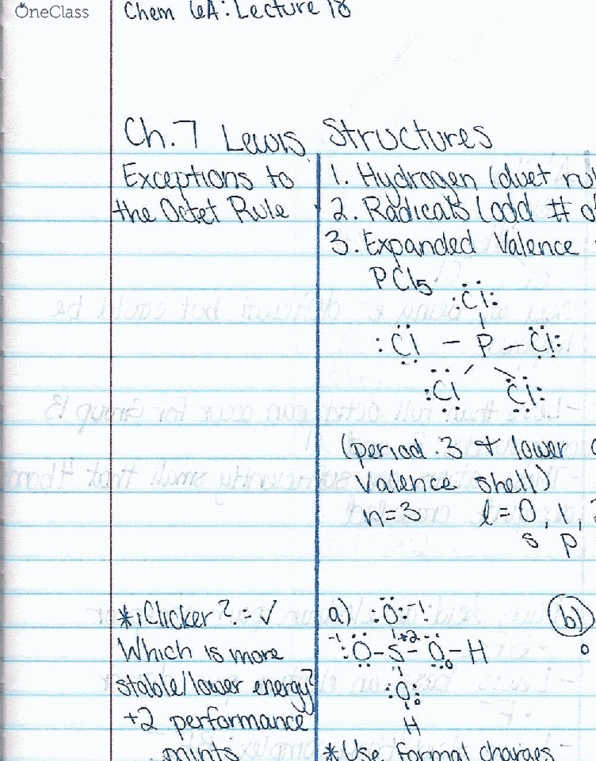 OneClass
Chem 6A: Lecture 18
Ch. 7 Lewis Structures
Exceptions to
the Octet Rule
1. Hydrogen (duet ru
2. Radicals (odd # o
3. Expanded Valence
PCl5
:Cl:
:Cl - P - Cl:
:Cl Cl:
(period 3 & lower
valence shell)
n=3 l=0, 1,
s p
*iClicker?:- ✓
Which is more
stable/lower energy?
+2 performance
points
a) :O: -1 (b)
-1 +2
:O-S-O-H
:O:
H
*Use formal charges